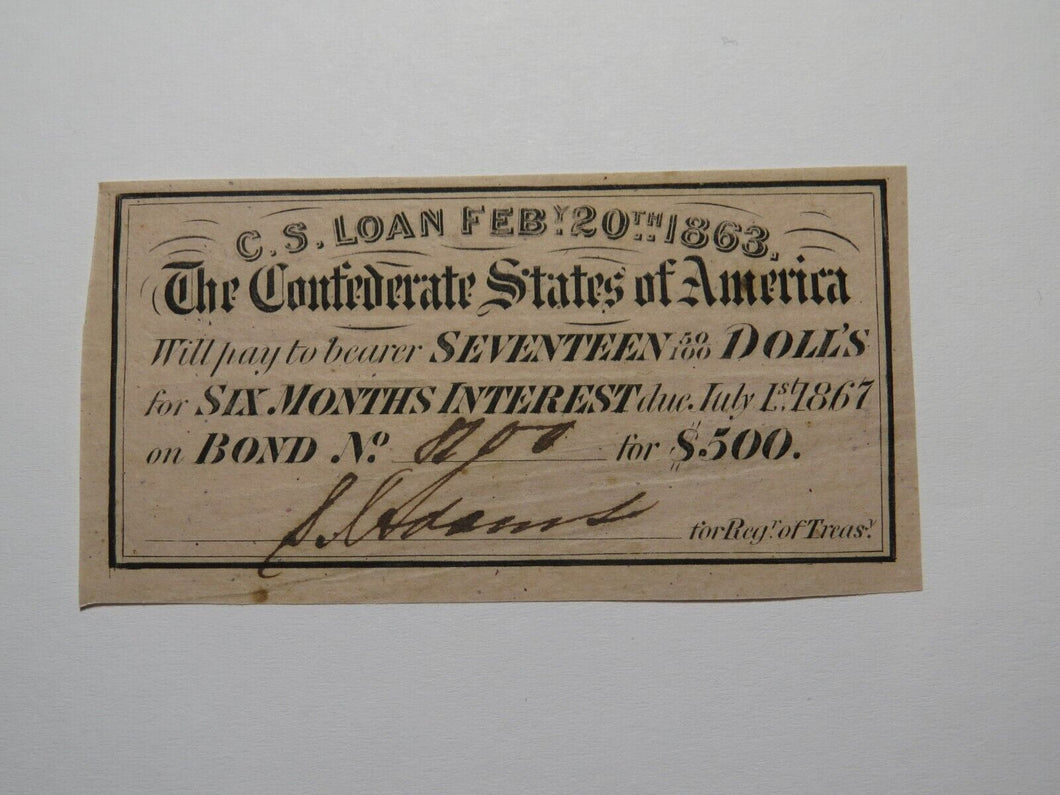 C. S. LOAN FEBY. 20TH. 1863,
The Confederate States of America
Will pay to bearer SEVENTEEN 50/100 DOLL'S
for SIX MONTHS INTEREST due July 1st. 1867
on BOND No. for $500.
Adams for Regr. of Treasy.